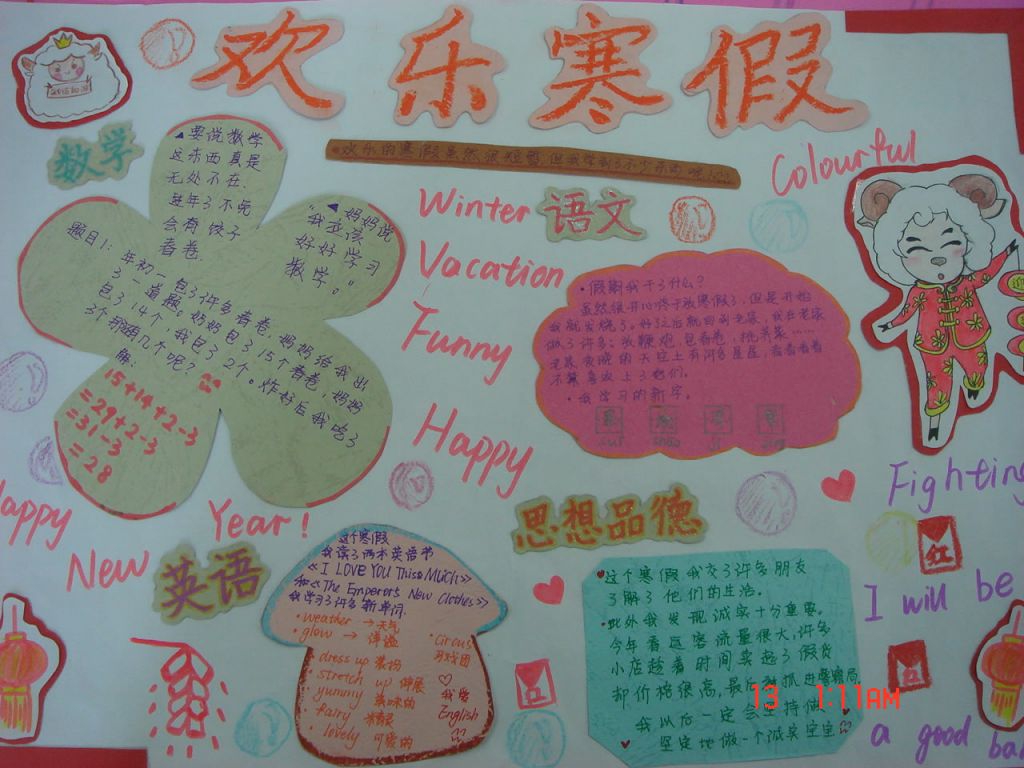 欢乐寒假
数学
▲要说数学
这东西真是
无处不在.
过年了不免
会有饺子
春卷.
"▲妈妈说
我应该
好好学习
数学。"
题目1:年初一包了许多春卷,妈妈给我出
了一道题。奶奶包了15个春卷,妈妈
包了14个,我包了2个。炸好后我吃了
3个,剩几个呢?
解:
15+14+2-3
=29+2-3
=31-3
=28
Winter
Vacation
Funny
Happy
语文
Colourful
·假期我干了什么?
虽然很开心终于放寒假了,但是开始
我就发烧了。好了之后就回到老家,我在老家
做了许多:放鞭炮,包春卷,挑荠菜……
老家夜晚的天空上有许多星星,看着看着
不禁喜欢上了它们。
·我学习的新字。
Happy
New
Year!
英语
这个寒假
我读了两本英语书
《I LOVE YOU This Much》
和《The Emperors New Clothes》
我学习了许多新单词.
·weather→天气
·glow→洋溢
·dress up 装扮
·stretch up 伸展
·yummy 美味的
·fairy
·lovely 可爱的
·Circus
马戏团
我爱
English
思想品德
这个寒假我交了许多朋友
了解了他们的生活。
·此外我发现诚实十分重要。
今年春运客流量很大,许多
小店趁着时间卖起了假货
却价格很高,最后被抓进警察局
我以后一定会坚持做
坚定地做一个诚实宝宝
Fighting
红
I will be
a good
13 1:11AM